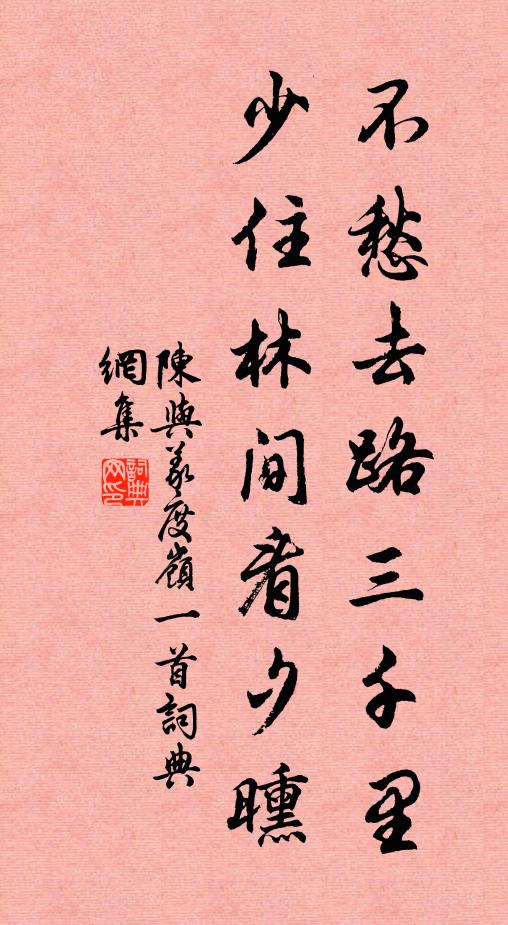 不愁去路三千里
少住林間看夕曛
陳與義度嶺一首詞典
網集
詞典网印